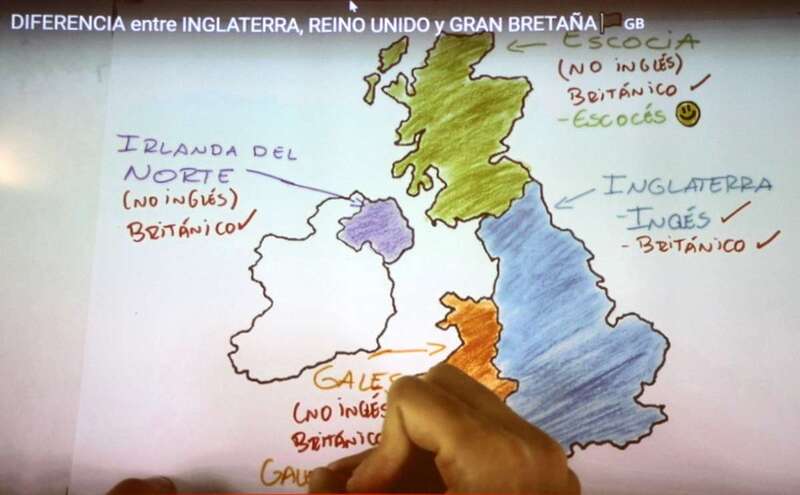 DIFERENCIA entre INGLATERRA, REINO UNIDO y GRAN BRETAÑA GB
ESCOCIA
(NO INGLÉS)
BRITÁNICO ✓
- ESCOCÉS
IRLANDA DEL
NORTE
(NO INGLÉS)
BRITÁNICO ✓
INGLATERRA
- INGÉS ✓
- BRITÁNICO ✓
GALES
(NO INGLÉS
BRITÁNICO